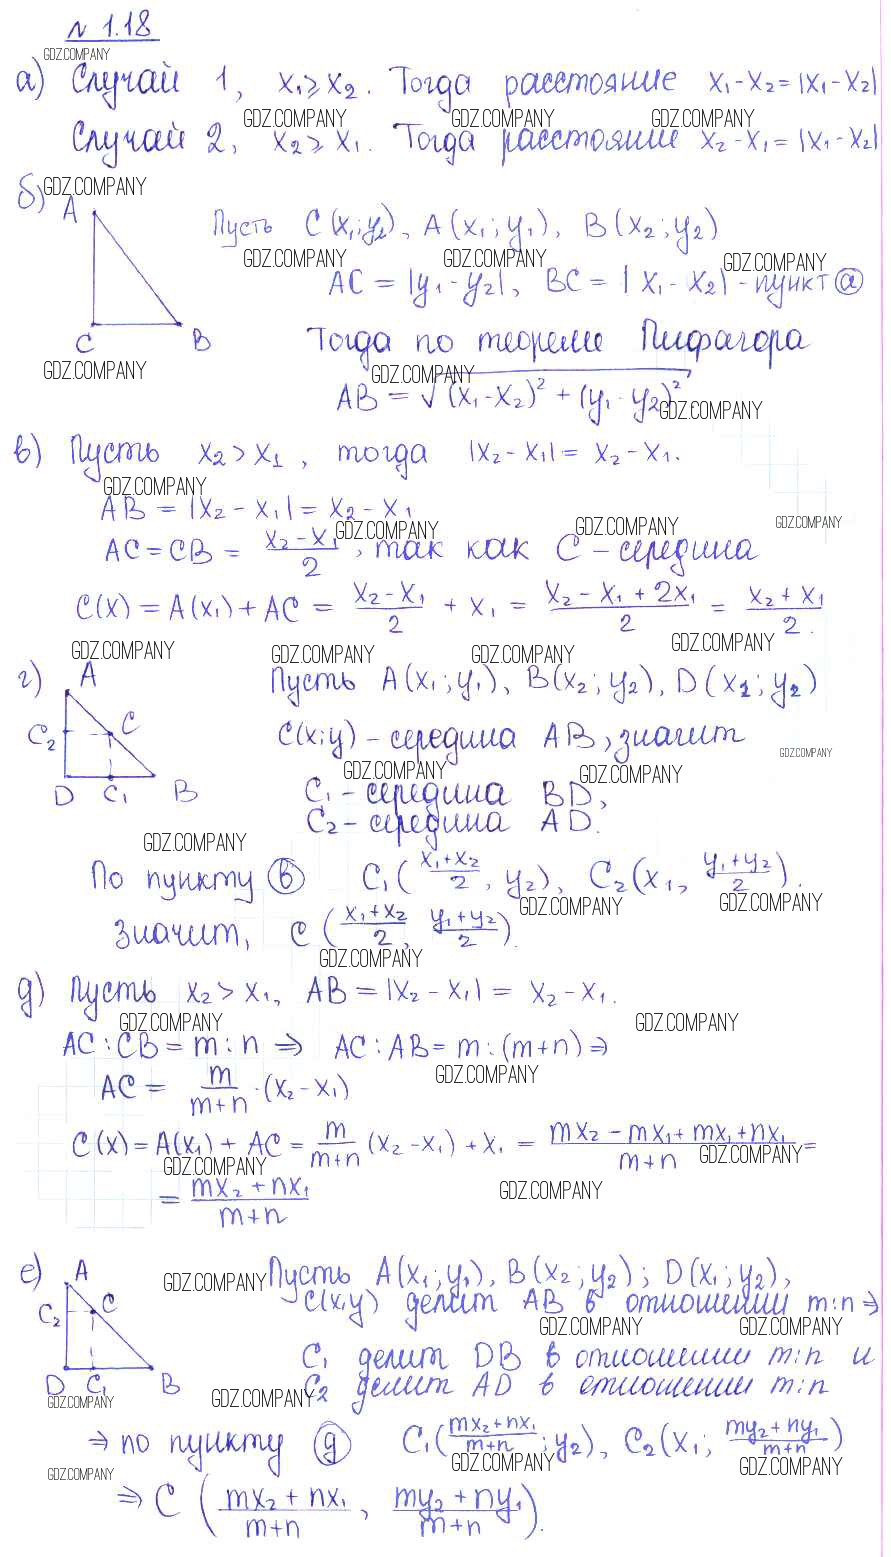 № 1.18
GDZ.COMPANY
а) Случай 1, x₁⩾x₂. Тогда расстояние x₁-x₂=|x₁-x₂|
GDZ.COMPANY GDZ.COMPANY GDZ.COMPANY
Случай 2, x₂⩾x₁. Тогда расстояние x₂-x₁=|x₁-x₂|
б) GDZ.COMPANY
A
Пусть C(x₁;y₂), A(x₁;y₁), B(x₂;y₂)
GDZ.COMPANY GDZ.COMPANY GDZ.COMPANY
AC = |y₁-y₂|, BC = |x₁-x₂| - пункт ⓐ
C B
Тогда по теореме Пифагора
GDZ.COMPANY GDZ.COMPANY
AB = √((x₁-x₂)² + (y₁-y₂)²)
GDZ.COMPANY
в) Пусть x₂>x₁, тогда |x₂-x₁| = x₂-x₁.
GDZ.COMPANY
AB = |x₂-x₁| = x₂-x₁
GDZ.COMPANY GDZ.COMPANY GDZ.COMPANY
AC=CB = (x₂-x₁)/2, так как C - середина
C(x) = A(x₁) + AC = (x₂-x₁)/2 + x₁ = (x₂-x₁+2x₁)/2 = (x₂+x₁)/2.
GDZ.COMPANY GDZ.COMPANY GDZ.COMPANY GDZ.COMPANY
г) A
Пусть A(x₁;y₁), B(x₂;y₂), D(x₁;y₂)
C₂ C
C(x;y) - середина AB, значит
GDZ.COMPANY
GDZ.COMPANY GDZ.COMPANY
D C₁ B
C₁ - середина BD,
C₂ - середина AD.
GDZ.COMPANY
По пункту ⓑ C₁((x₁+x₂)/2, y₂), C₂(x₁, (y₁+y₂)/2).
GDZ.COMPANY GDZ.COMPANY
значит, C((x₁+x₂)/2, (y₁+y₂)/2).
GDZ.COMPANY
д) Пусть x₂>x₁, AB = |x₂-x₁| = x₂-x₁.
GDZ.COMPANY GDZ.COMPANY
AC:CB = m:n ⇒ AC:AB = m:(m+n) ⇒
GDZ.COMPANY
AC = m/(m+n) · (x₂-x₁)
C(x) = A(x₁) + AC = m/(m+n) (x₂-x₁) + x₁ = (mx₂-mx₁+mx₁+nx₁)/(m+n) =
GDZ.COMPANY GDZ.COMPANY
= (mx₂+nx₁)/(m+n)
GDZ.COMPANY
е) A
GDZ.COMPANY
Пусть A(x₁;y₁), B(x₂;y₂); D(x₁;y₂),
C₂ C
C(x;y) делит AB в отношении m:n ⇒
GDZ.COMPANY GDZ.COMPANY
C₁ делит DB в отношении m:n и
D C₁ B
C₂ делит AD в отношении m:n
GDZ.COMPANY GDZ.COMPANY
⇒ по пункту ⓓ C₁((mx₂+nx₁)/(m+n); y₂), C₂(x₁; (my₂+ny₁)/(m+n))
GDZ.COMPANY GDZ.COMPANY GDZ.COMPANY
⇒ C((mx₂+nx₁)/(m+n), (my₂+ny₁)/(m+n)).